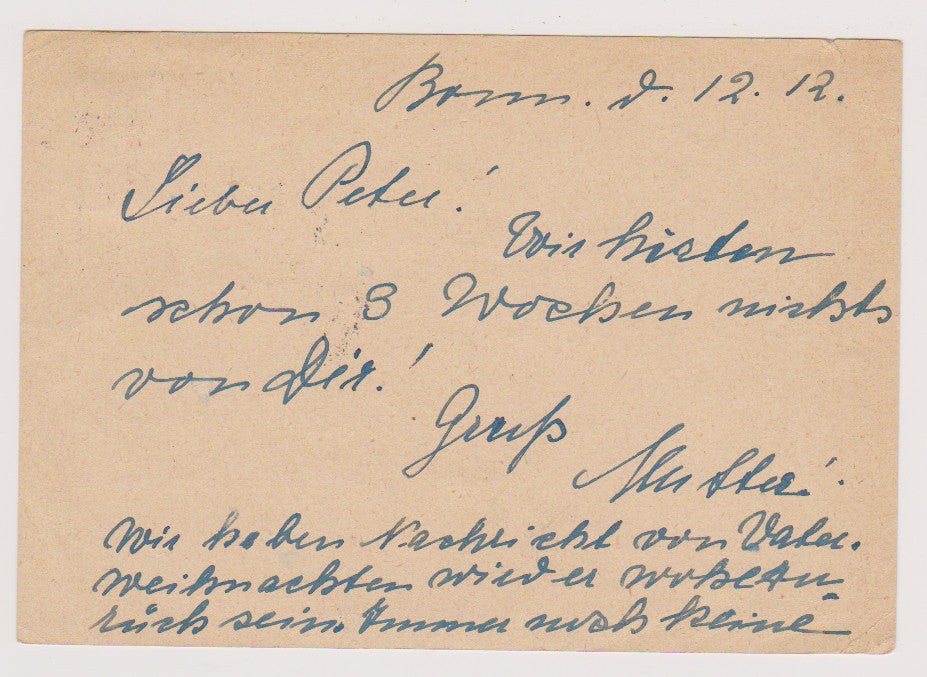 Bonn. d. 12. 12.
Lieber Peter!
Wir hörten
schon 3 Wochen nichts
von Dir!
Gruß
Mutter!
Wir haben Nachricht von Vater.
Weihnachten wieder zu-
rück sein. Immer noch keine